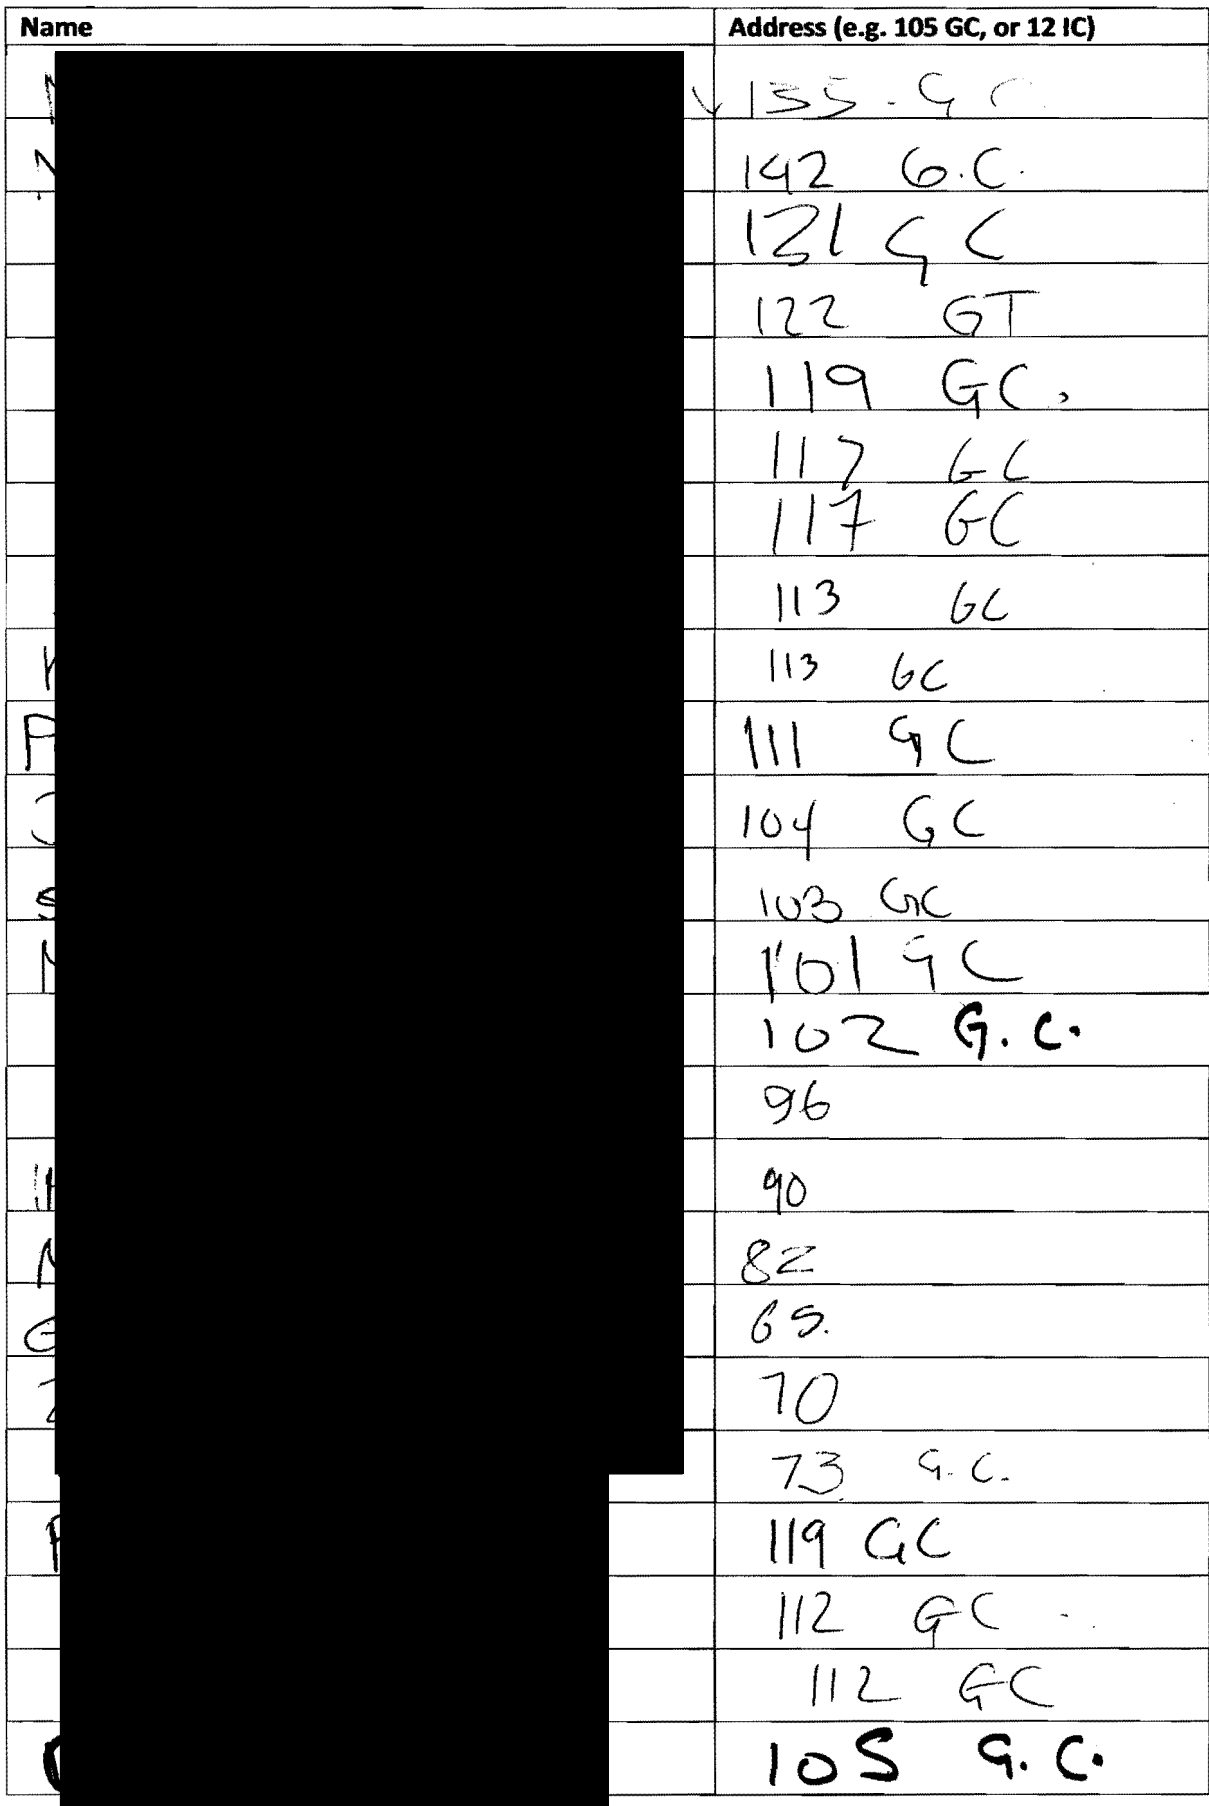 Name Address (e.g. 105 GC, or 12 IC)
135. G C
142 G.C.
121 G C
122 GT
119 GC.
117 GC
117 GC
113 GC
113 GC
P 111 GC
104 GC
S 103 GC
101 GC
102 G.C.
96
90
82
G 65.
70
73 G.C.
P 119 GC
112 GC
112 GC
105 G.C.